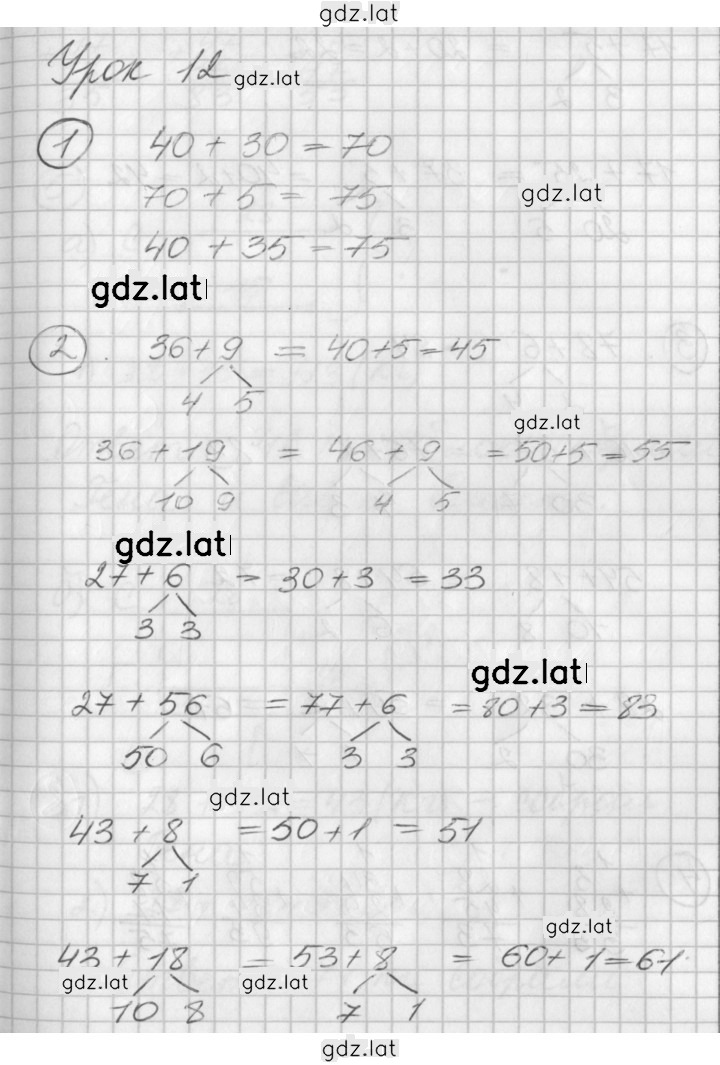 gdz.lat
Урок 12 gdz.lat
1 40 + 30 = 70
70 + 5 = 75 gdz.lat
40 + 35 = 75
gdz.lat
2. 36 + 9 = 40 + 5 = 45
4 5
gdz.lat
36 + 19 = 46 + 9 = 50 + 5 = 55
10 9 4 5
gdz.lat
27 + 6 = 30 + 3 = 33
3 3
gdz.lat
27 + 56 = 77 + 6 = 80 + 3 = 83
50 6 3 3
gdz.lat
43 + 8 = 50 + 1 = 51
7 1
gdz.lat
43 + 18 = 53 + 8 = 60 + 1 = 61
gdz.lat gdz.lat
10 8 7 1
gdz.lat